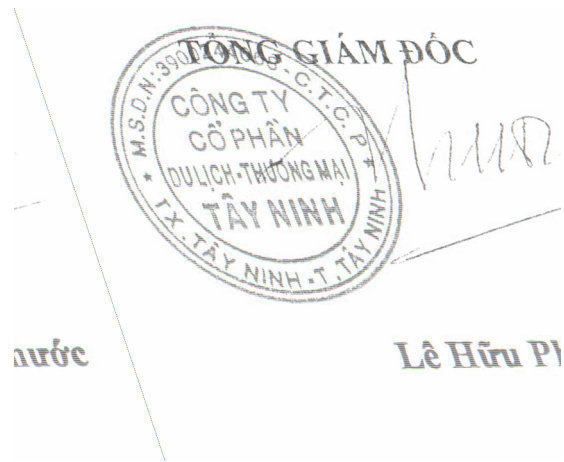 TỔNG GIÁM ĐỐC
M.S.D.N: - C.T.C.P
CÔNG TY
CỔ PHẦN
DU LỊCH - THƯƠNG MẠI
TÂY NINH
TX. TÂY NINH - T. TÂY NINH
Lê Hữu